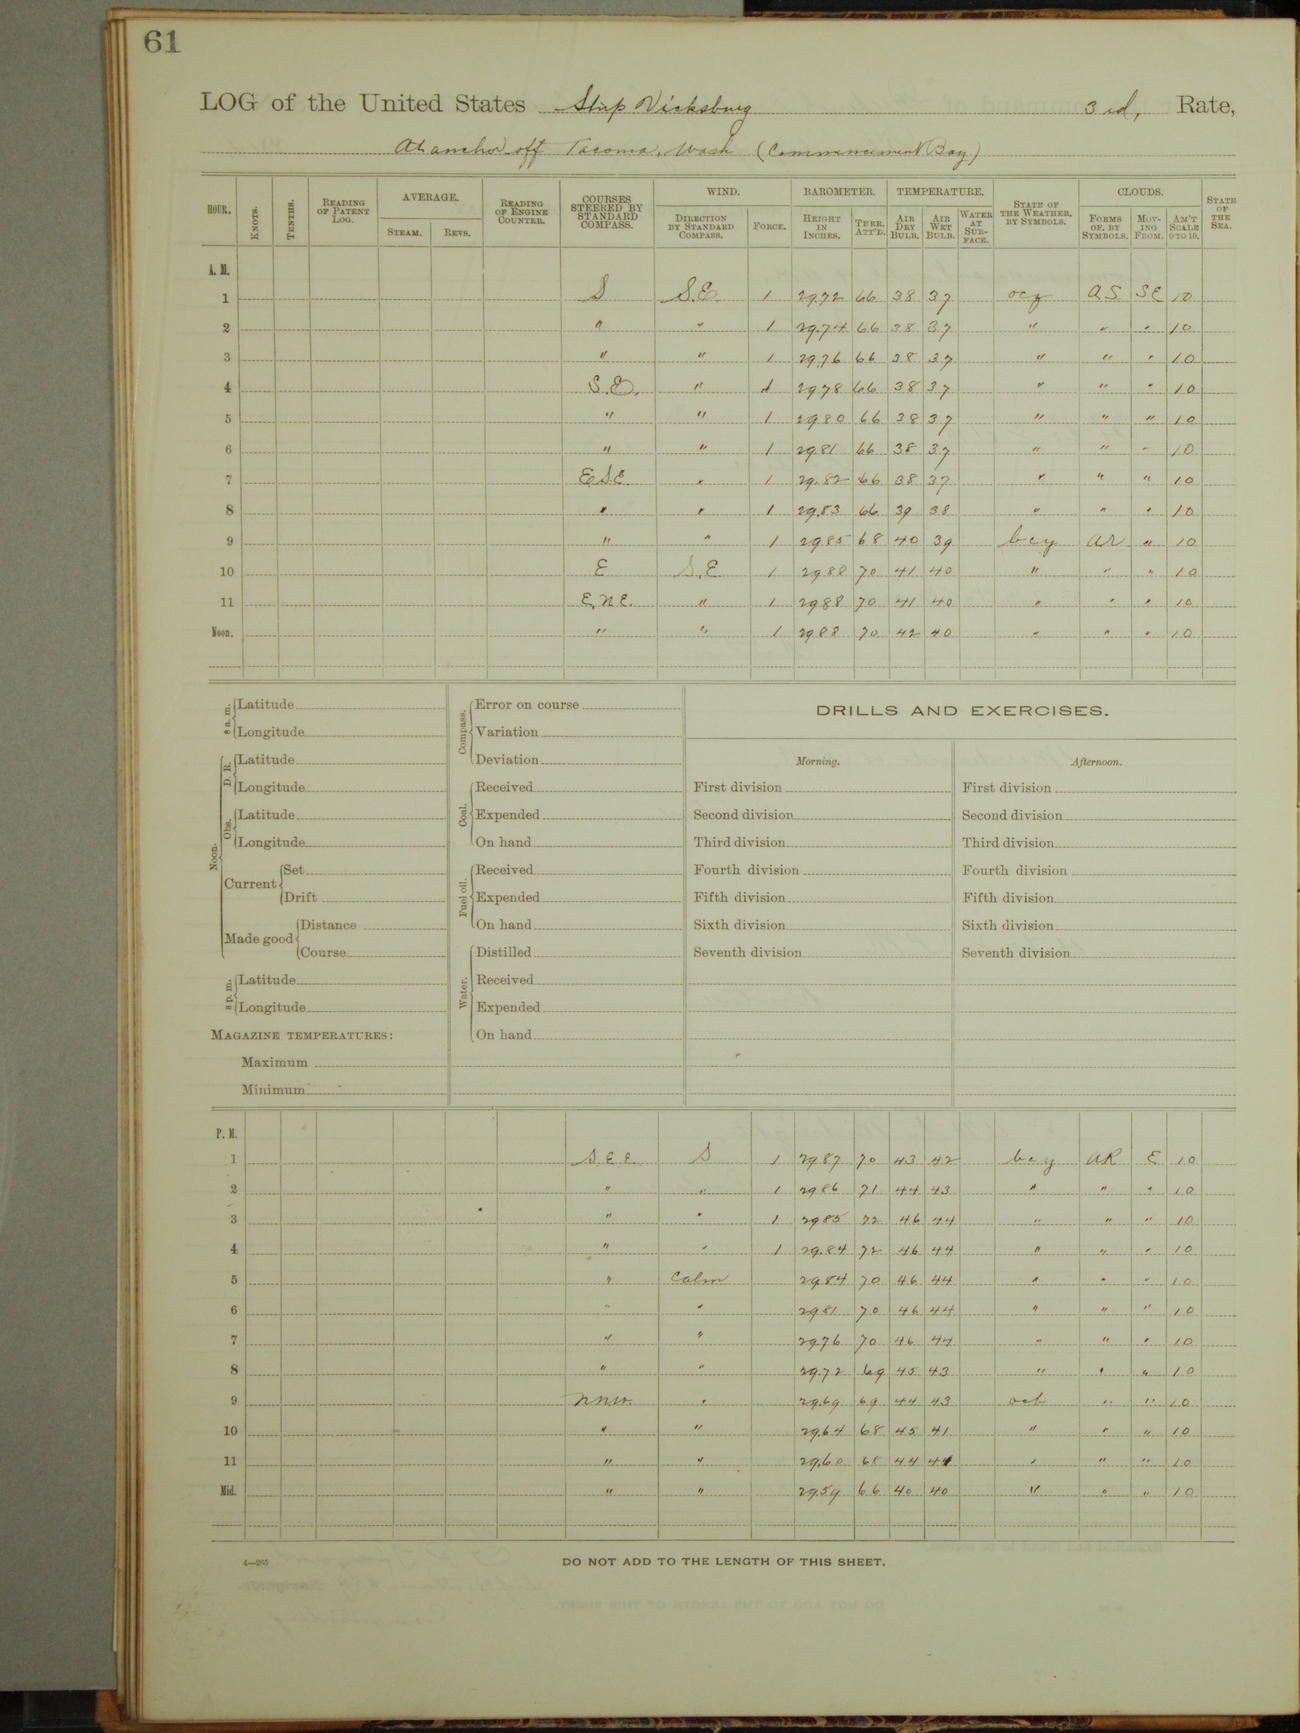 61
LOG of the United States Ship Vicksburg 3rd, Rate,
At anchor off Tacoma, Wash (Commencement Bay)
HOUR. KNOTS. TENTHS. READING OF PATENT LOG. AVERAGE. STEAM. REVS. READING OF ENGINE COUNTER. COURSES STEERED BY STANDARD COMPASS. WIND. DIRECTION BY STANDARD COMPASS. FORCE. BAROMETER. HEIGHT IN INCHES. THER. ATT'D. TEMPERATURE. AIR DRY BULB. AIR WET BULB. WATER AT SURFACE. STATE OF THE WEATHER, BY SYMBOLS. CLOUDS. FORMS OF, BY SYMBOLS. MOVING FROM. AM'T SCALE 0 TO 10. STATE OF THE SEA.
A. M.
1 S S.E. 1 29.72 66 38 37 ocg A.S. SE 10
2 " " 1 29.74 66 38 37 " " " 10
3 " " 1 29.76 66 38 37 " " " 10
4 S.E. " 1 29.78 66 38 37 " " " 10
5 " " 1 29.80 66 38 37 " " " 10
6 " " 1 29.81 66 38 37 " " " 10
7 E.S.E. " 1 29.82 66 38 37 " " " 10
8 " " 1 29.83 66 39 38 " " " 10
9 " " 1 29.85 68 40 39 bcy " 10
10 E S.E. 1 29.88 70 41 40 " " " 10
11 E.N.E. " 1 29.88 70 41 40 " " " 10
Noon. " " 1 29.88 70 42 40 " " " 10
8 a. m. Latitude
Longitude
Noon. D. R. Latitude
Longitude
Obs. Latitude
Longitude
Current Set
Drift
Made good Distance
Course
8 p. m. Latitude
Longitude
MAGAZINE TEMPERATURES:
Maximum
Minimum
Compass. Error on course
Variation
Deviation
Coal. Received
Expended
On hand
Fuel oil. Received
Expended
On hand
Water. Distilled
Received
Expended
On hand
DRILLS AND EXERCISES.
Morning.
First division
Second division
Third division
Fourth division
Fifth division
Sixth division
Seventh division
Afternoon.
First division
Second division
Third division
Fourth division
Fifth division
Sixth division
Seventh division
P. M.
1 S.E.E. S 1 29.87 70 43 42 bcy E 10
2 " " 1 29.86 71 44 43 " " " 10
3 " " 1 29.85 72 46 44 " " " 10
4 " " 1 29.84 72 46 44 " " " 10
5 " Calm 29.84 70 46 44 " " " 10
6 " " 29.81 70 46 44 " " " 10
7 " " 29.76 70 46 44 " " " 10
8 " " 29.72 69 45 43 " " " 10
9 NNW. " 29.69 69 44 43 " " 10
10 " " 29.64 68 45 41 " " " 10
11 " " 29.60 68 44 " " " 10
Mid. " " 29.59 66 40 40 " " " 10
4—265
DO NOT ADD TO THE LENGTH OF THIS SHEET.